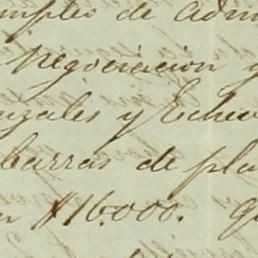 mples de admi
negociacion y
nzales y Echev
barras de pla
$16.000.